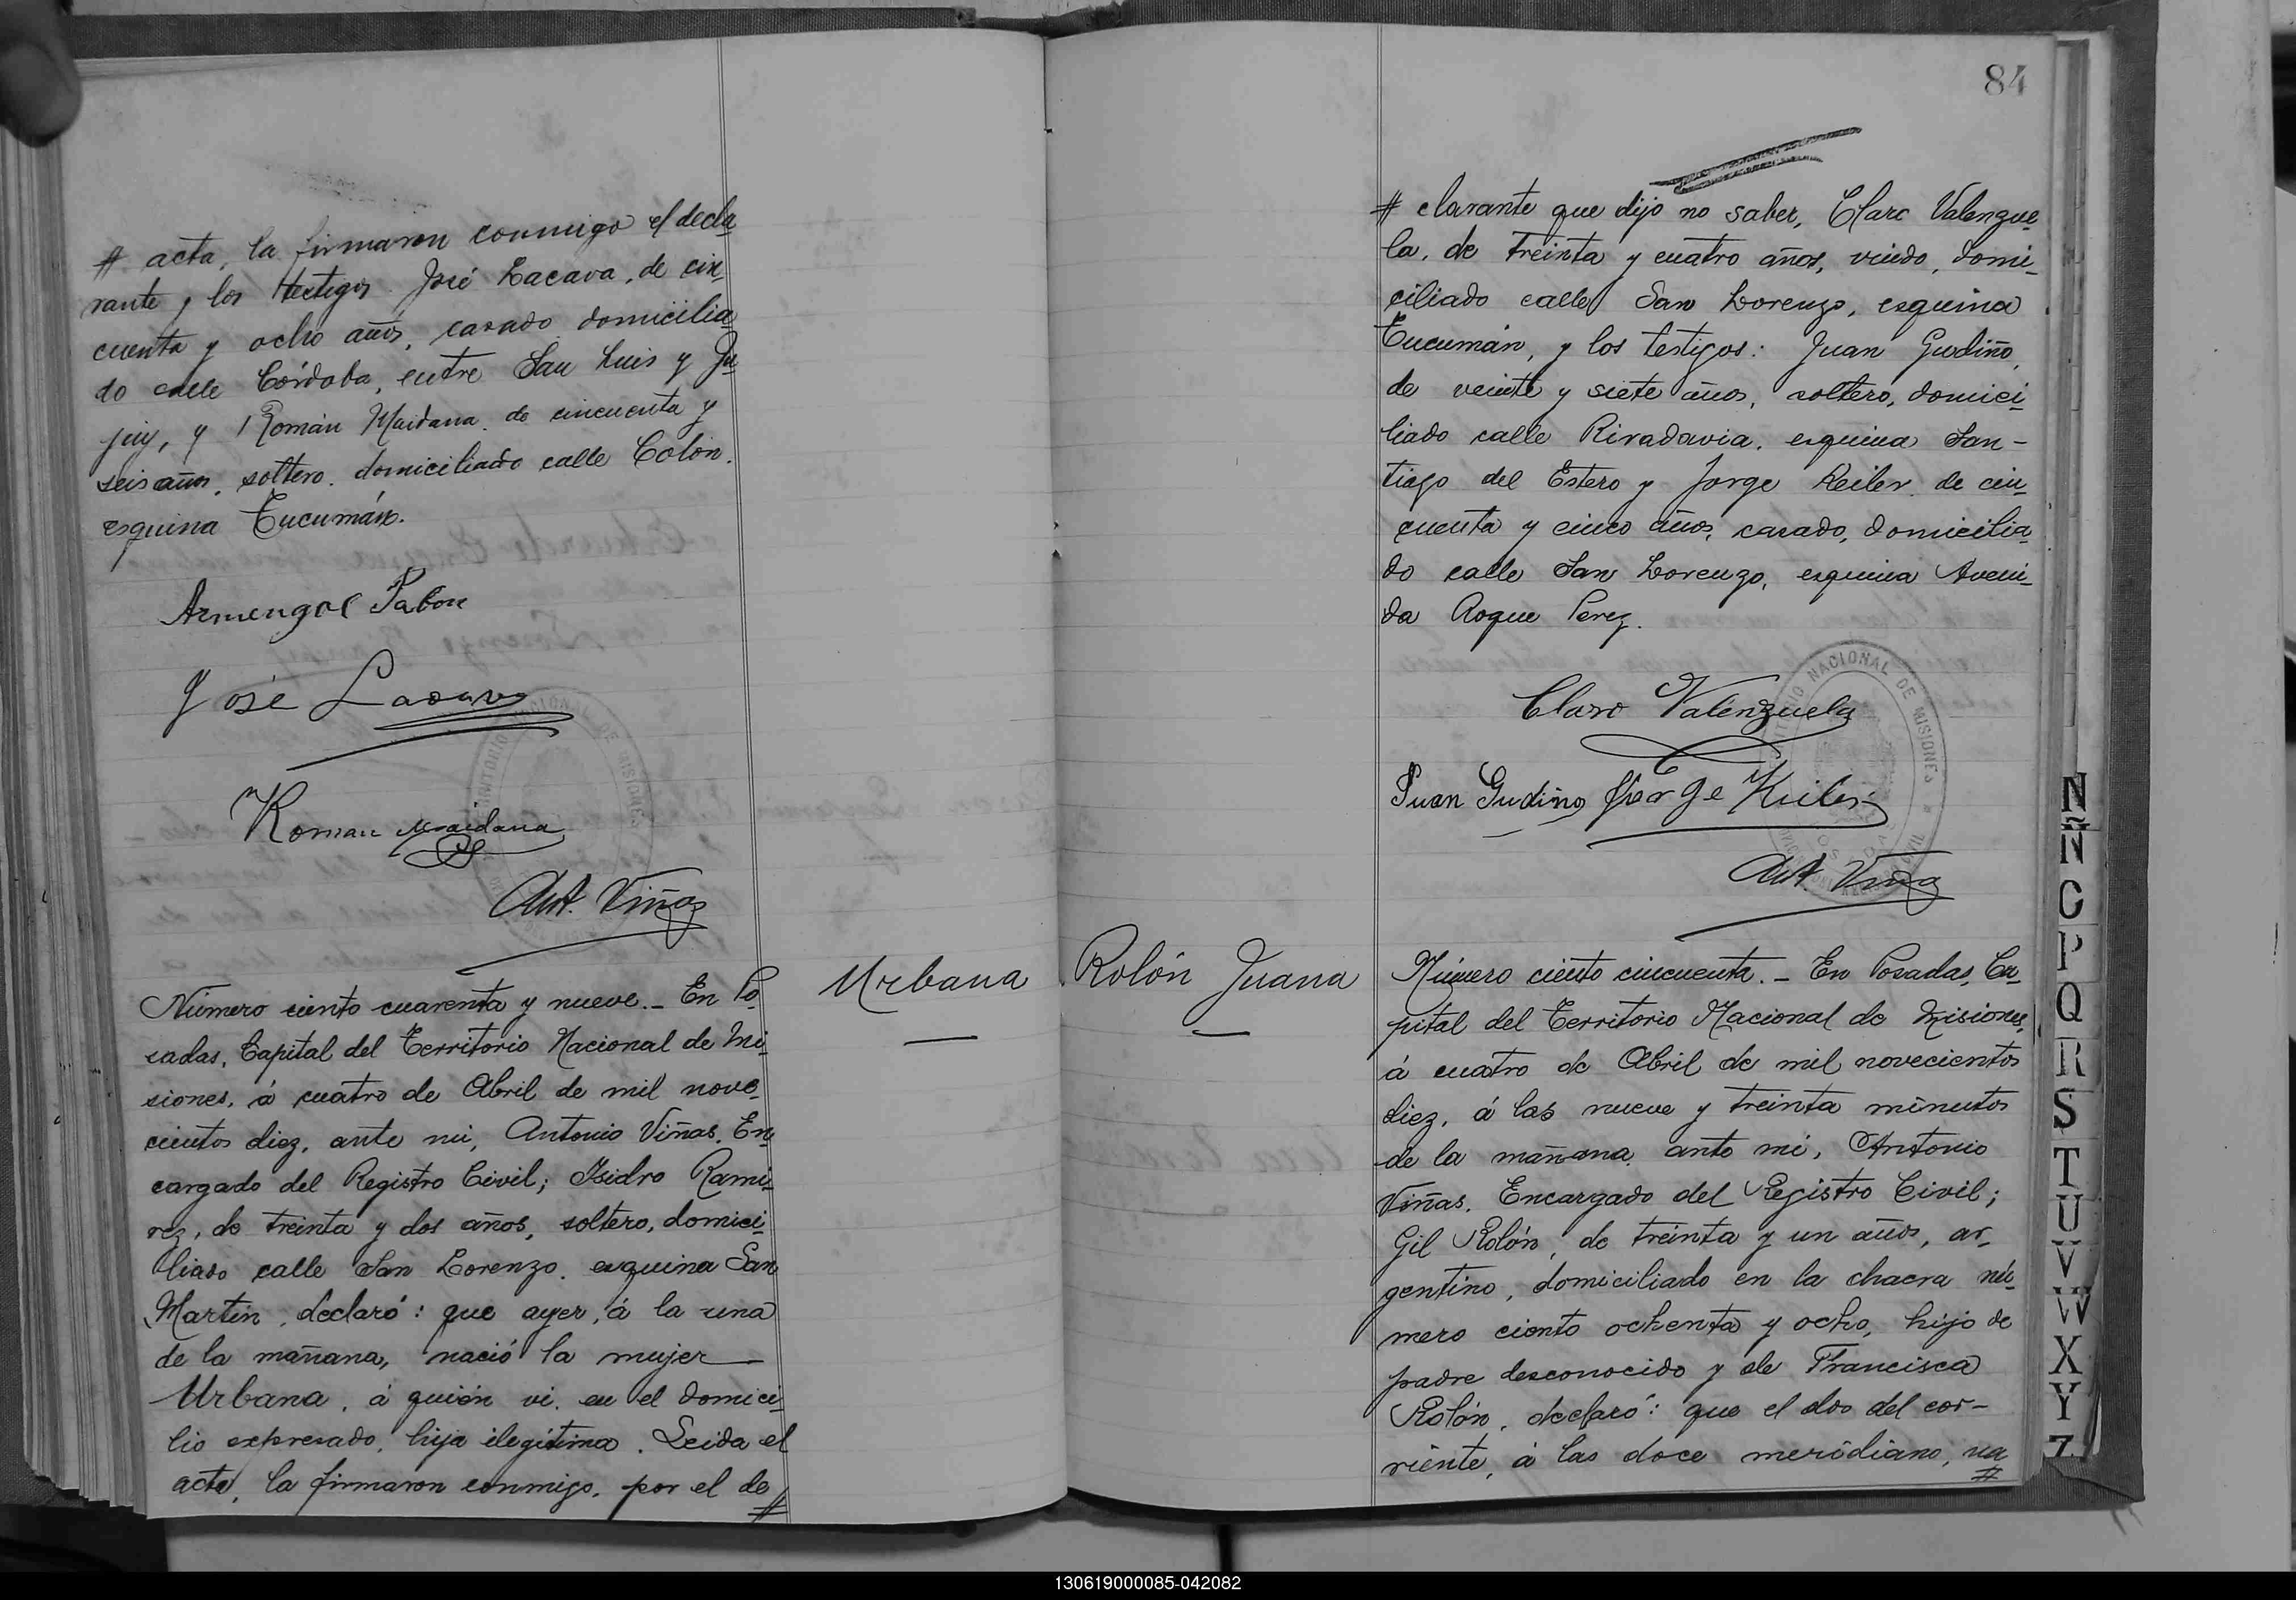 # acta, la firmaron conmigo el decla
rante y los testigos José Lacava, de cin
cuenta y ocho años, casado domicilia
do calle Córdoba, entre San Luis y Ju
juy, y Román Maidana de cincuenta y
seis años, soltero, domiciliado calle Colón.
esquina Tucumán.
Armengol Pabon
José Lacava
Roman Maidana
Ant. Viñas
Número ciento cuarenta y nueve.- En Po
sadas, Capital del Territorio Nacional de Mi
siones, á cuatro de Abril de mil nove
cientos diez, ante mi, Antonio Viñas, En
cargado del Registro Civil; Isidro Rami
rez, de treinta y dos años, soltero, domici
liado calle San Lorenzo, esquina San
Martin, declaró: que ayer, á la una
de la mañana, nació la mujer
Urbana, á quién vi, en el domici
lio expresado, hija ilegitima. Leida el
acta, la firmaron conmigo, por el de
#
Urbana
84
# clarante que dijo no saber, Claro Valenzue
la, de treinta y cuatro años, viudo, domi
ciliado calle San Lorenzo, esquina
Tucumán, y los testigos: Juan Gudiño,
de veinte y siete años, soltero, domici
liado calle Rivadavia, esquina San-
tiago del Estero y Jorge Keiler de cin
cuenta y cinco años, casado, domicilia
do calle San Lorenzo, esquina Aveni
da Roque Perez.
Claro Valenzuela
Juan Gudiño Jorge Keiler
Ant. Viñas
TERRITORIO NACIONAL DE MISIONES
Rolón Juana
Número ciento cincuenta.- En Posadas, Ca
pital del Territorio Nacional de Misiones,
á cuatro de Abril de mil novecientos
diez, á las nueve y treinta minutos
de la mañana, ante mi, Antonio
Viñas, Encargado del Registro Civil;
Gil Rolón, de treinta y un años, ar
gentino, domiciliado en la chacra nú
mero ciento ochenta y ocho, hijo de
padre desconocido y de Francisca
Rolón, declaró: que el dos del cor-
riente, á las doce meridiano, na
#
N
Ñ
O
P
Q
R
S
T
U
V
W
X
Y
Z
130619000085-042082